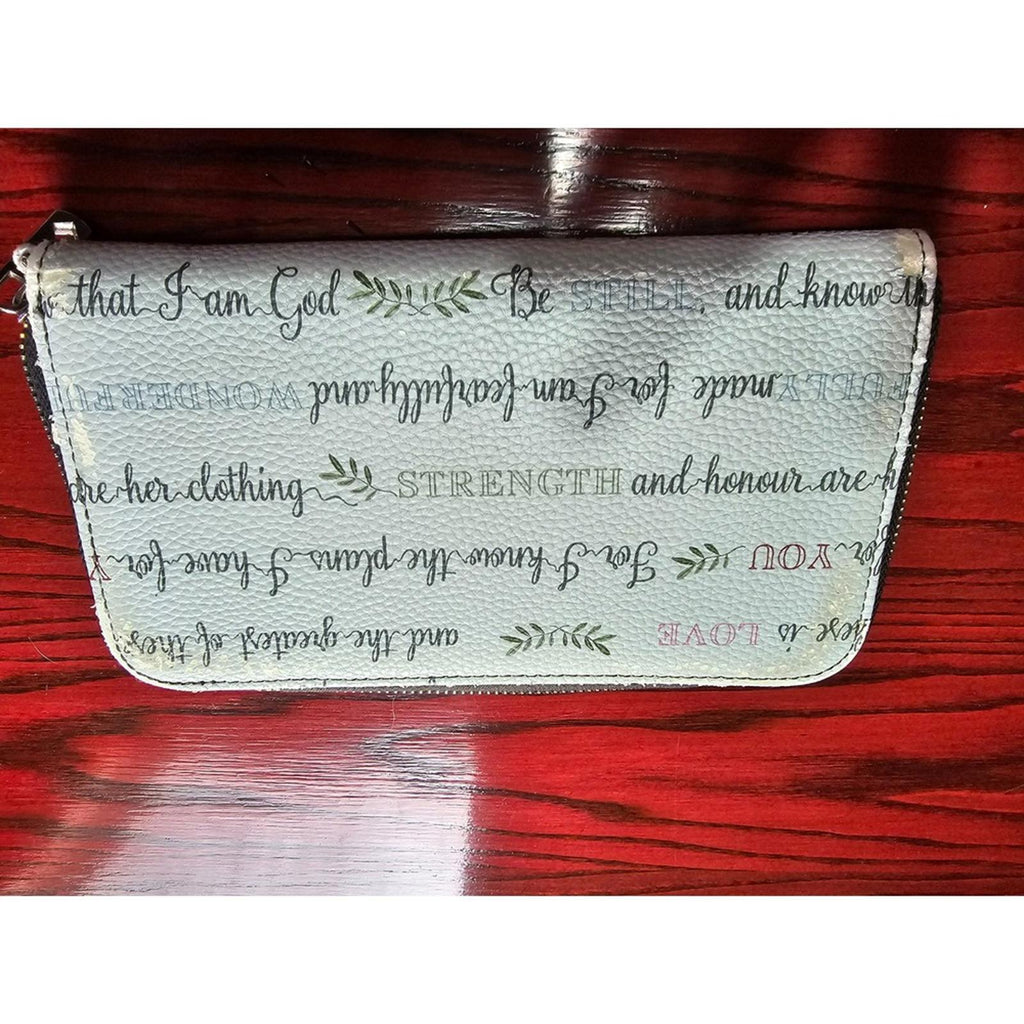 that I am God Be STILL, and know
FULLY made for I am fearfully and WONDERFU
are her clothing STRENGTH and honour are h
for YOU For I know the plans I have for Y
hese is LOVE and the greatest of thes